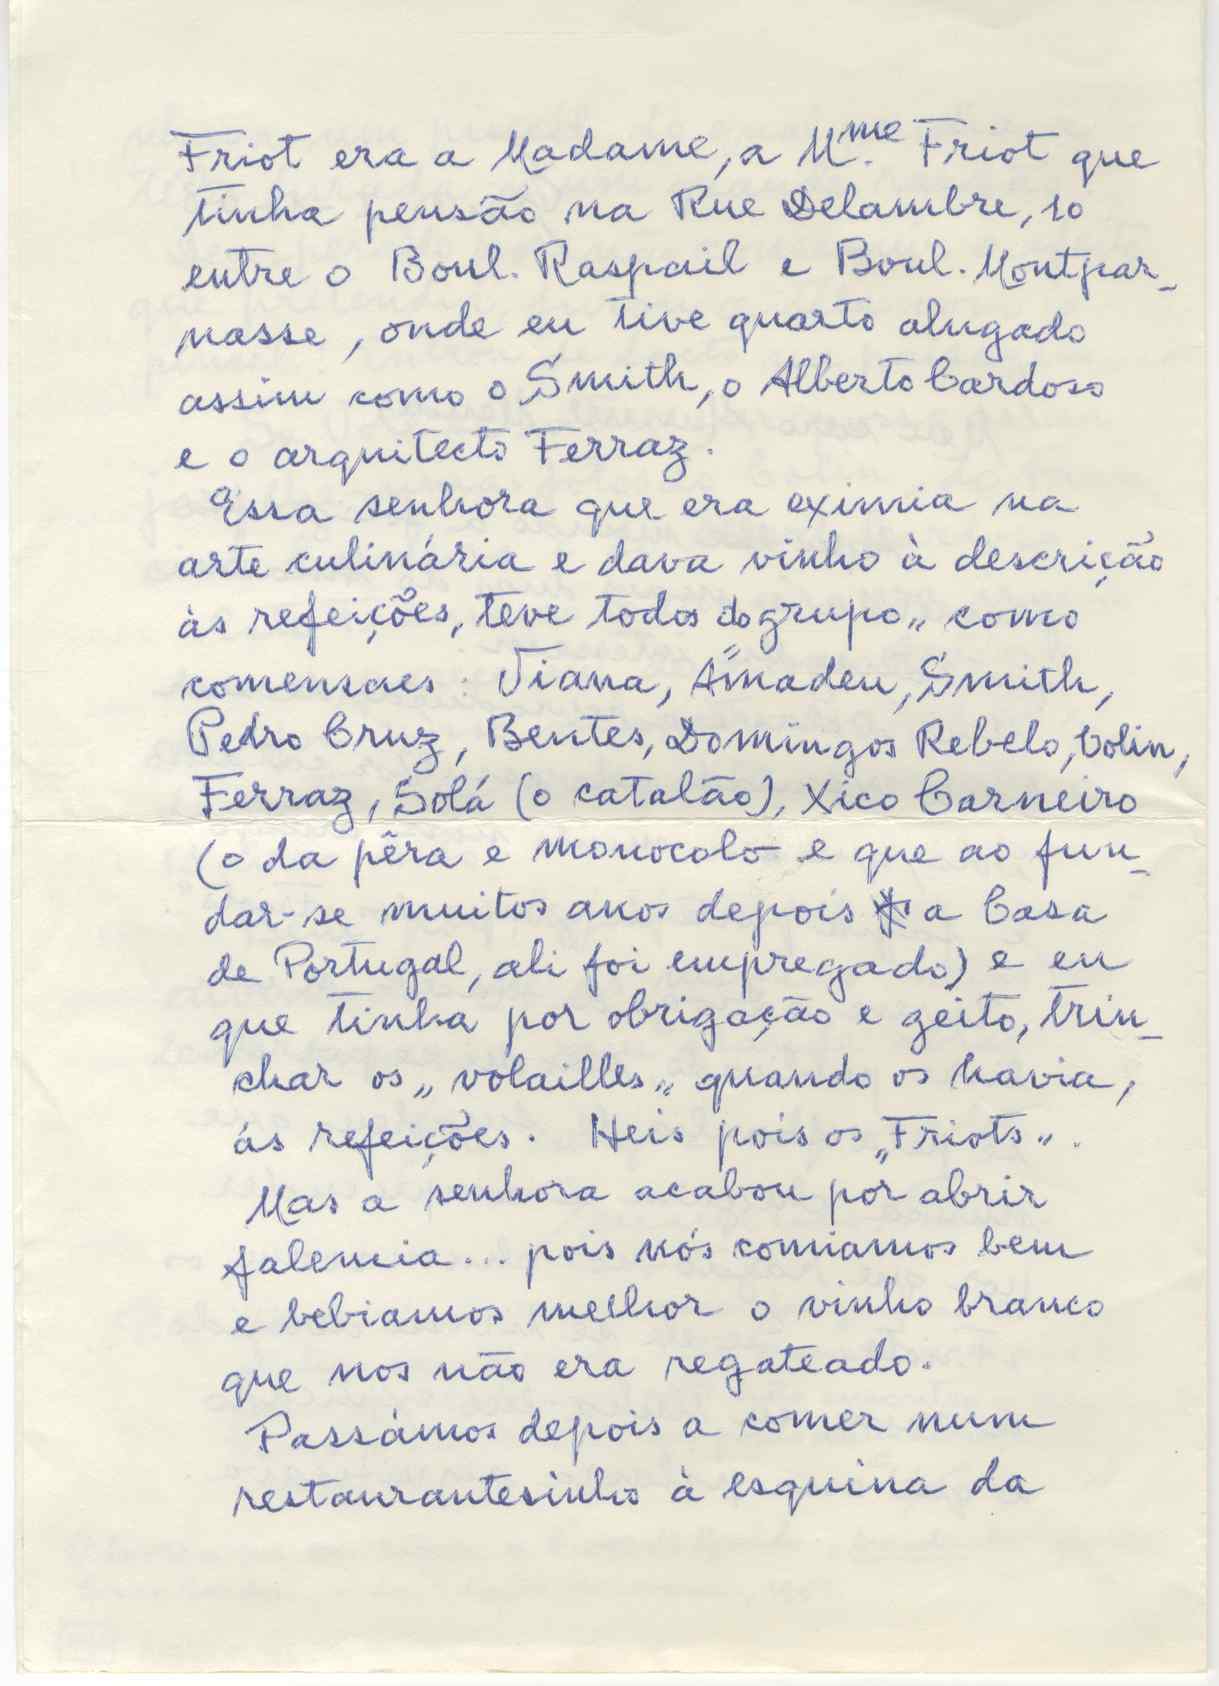 Friot era a Madame, a Mme. Friot que
tinha pensão na Rue Delambre, 10
entre o Boul. Raspail e Boul. Montpar-
nasse, onde eu tive quarto alugado
assim como o Smith, o Alberto Cardoso
e o arquitecto Ferraz.
Essa senhora que era eximia na
arte culinária e dava vinho à descrição
às refeições, teve todos do „grupo„ como
comensaes: Viana, Amadeu, Smith,
Pedro Cruz, Bentes, Domingos Rebelo, Colin,
Ferraz, Solá (o catalão), Xico Carneiro
(o da pêra e monocolo e que ao fun-
dar-se muitos anos depois a Casa
de Portugal, ali foi empregado) e eu
que tinha por obrigação e geito, trin-
char os „volailles„ quando os havia,
ás refeições. Heis pois os „Friots„.
Mas a senhora acabou por abrir
falencia... pois nós comiamos bem
e bebiamos melhor o vinho branco
que nos não era regateado.
Passámos depois a comer num
restaurantesinho à esquina da